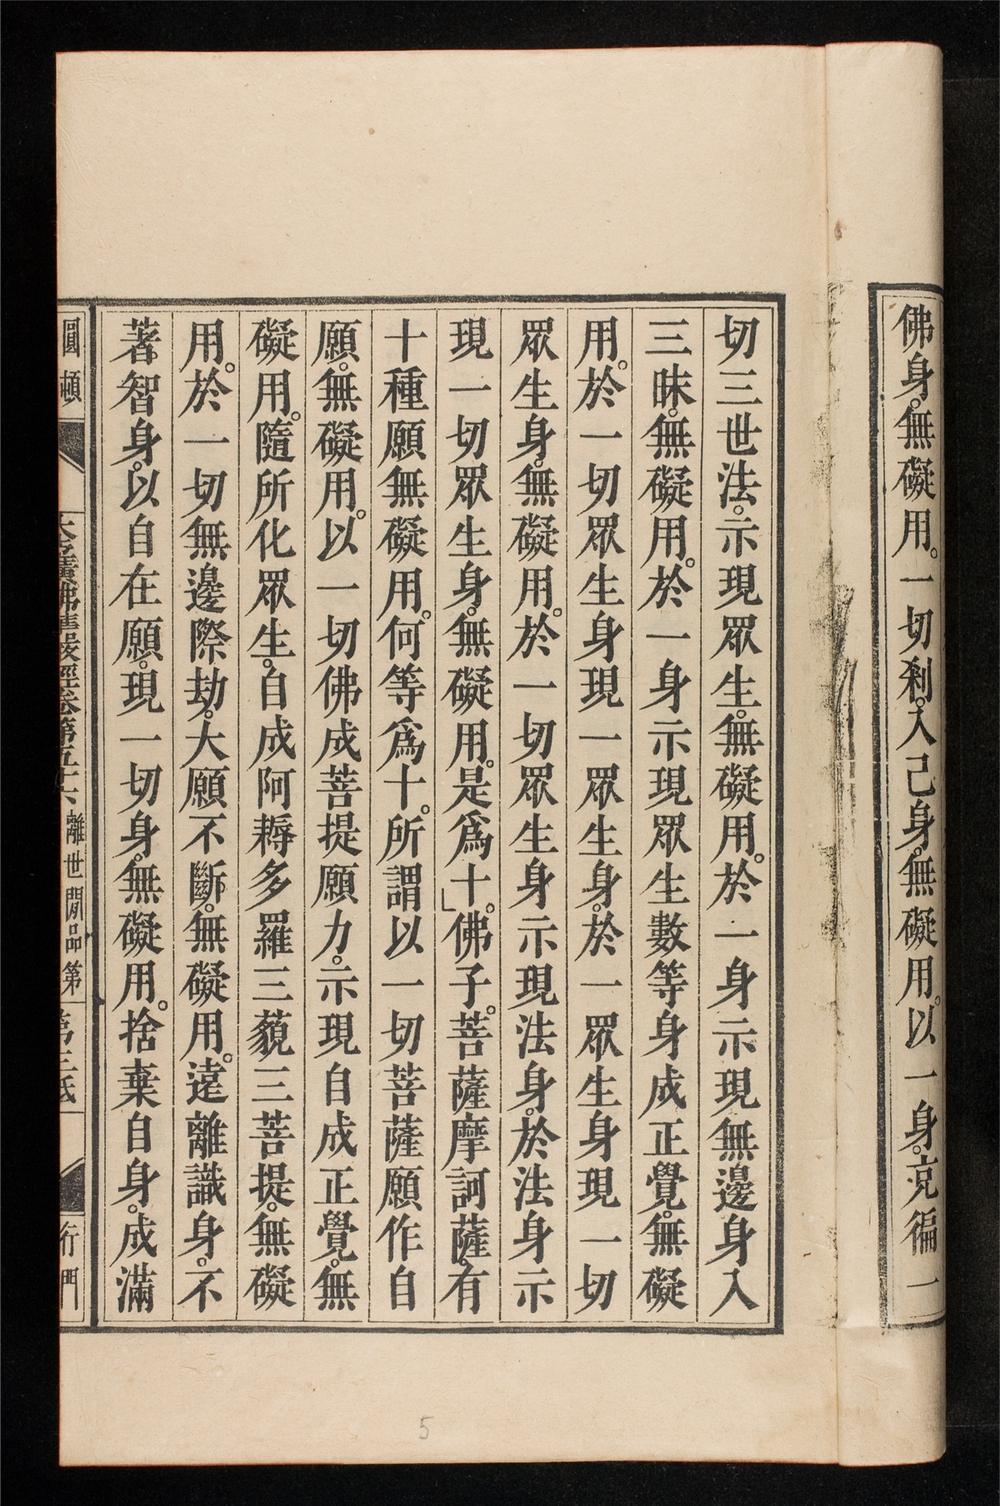 佛身。無礙用。一切刹。入己身。無礙用。以一身。充徧一
切三世法。示現眾生。無礙用。於一身示現無邊身入
三昧。無礙用。於一身示現眾生數等身成正覺。無礙
用。於一切眾生身現一眾生身。於一眾生身現一切
眾生身。無礙用。於一切眾生身示現法身。於法身示
現一切眾生身。無礙用。是為十。」佛子。菩薩摩訶薩。有
十種願無礙用。何等為十。所謂以一切菩薩願作自
願。無礙用。以一切佛成菩提願力。示現自成正覺。無
礙用。隨所化眾生。自成阿耨多羅三藐三菩提。無礙
用。於一切無邊際劫。大願不斷。無礙用。遠離識身。不
著智身。以自在願。現一切身。無礙用。捨棄自身。成滿
圓頓 大方廣佛華嚴經卷第五十六 離世間品第 第三紙 行門
5